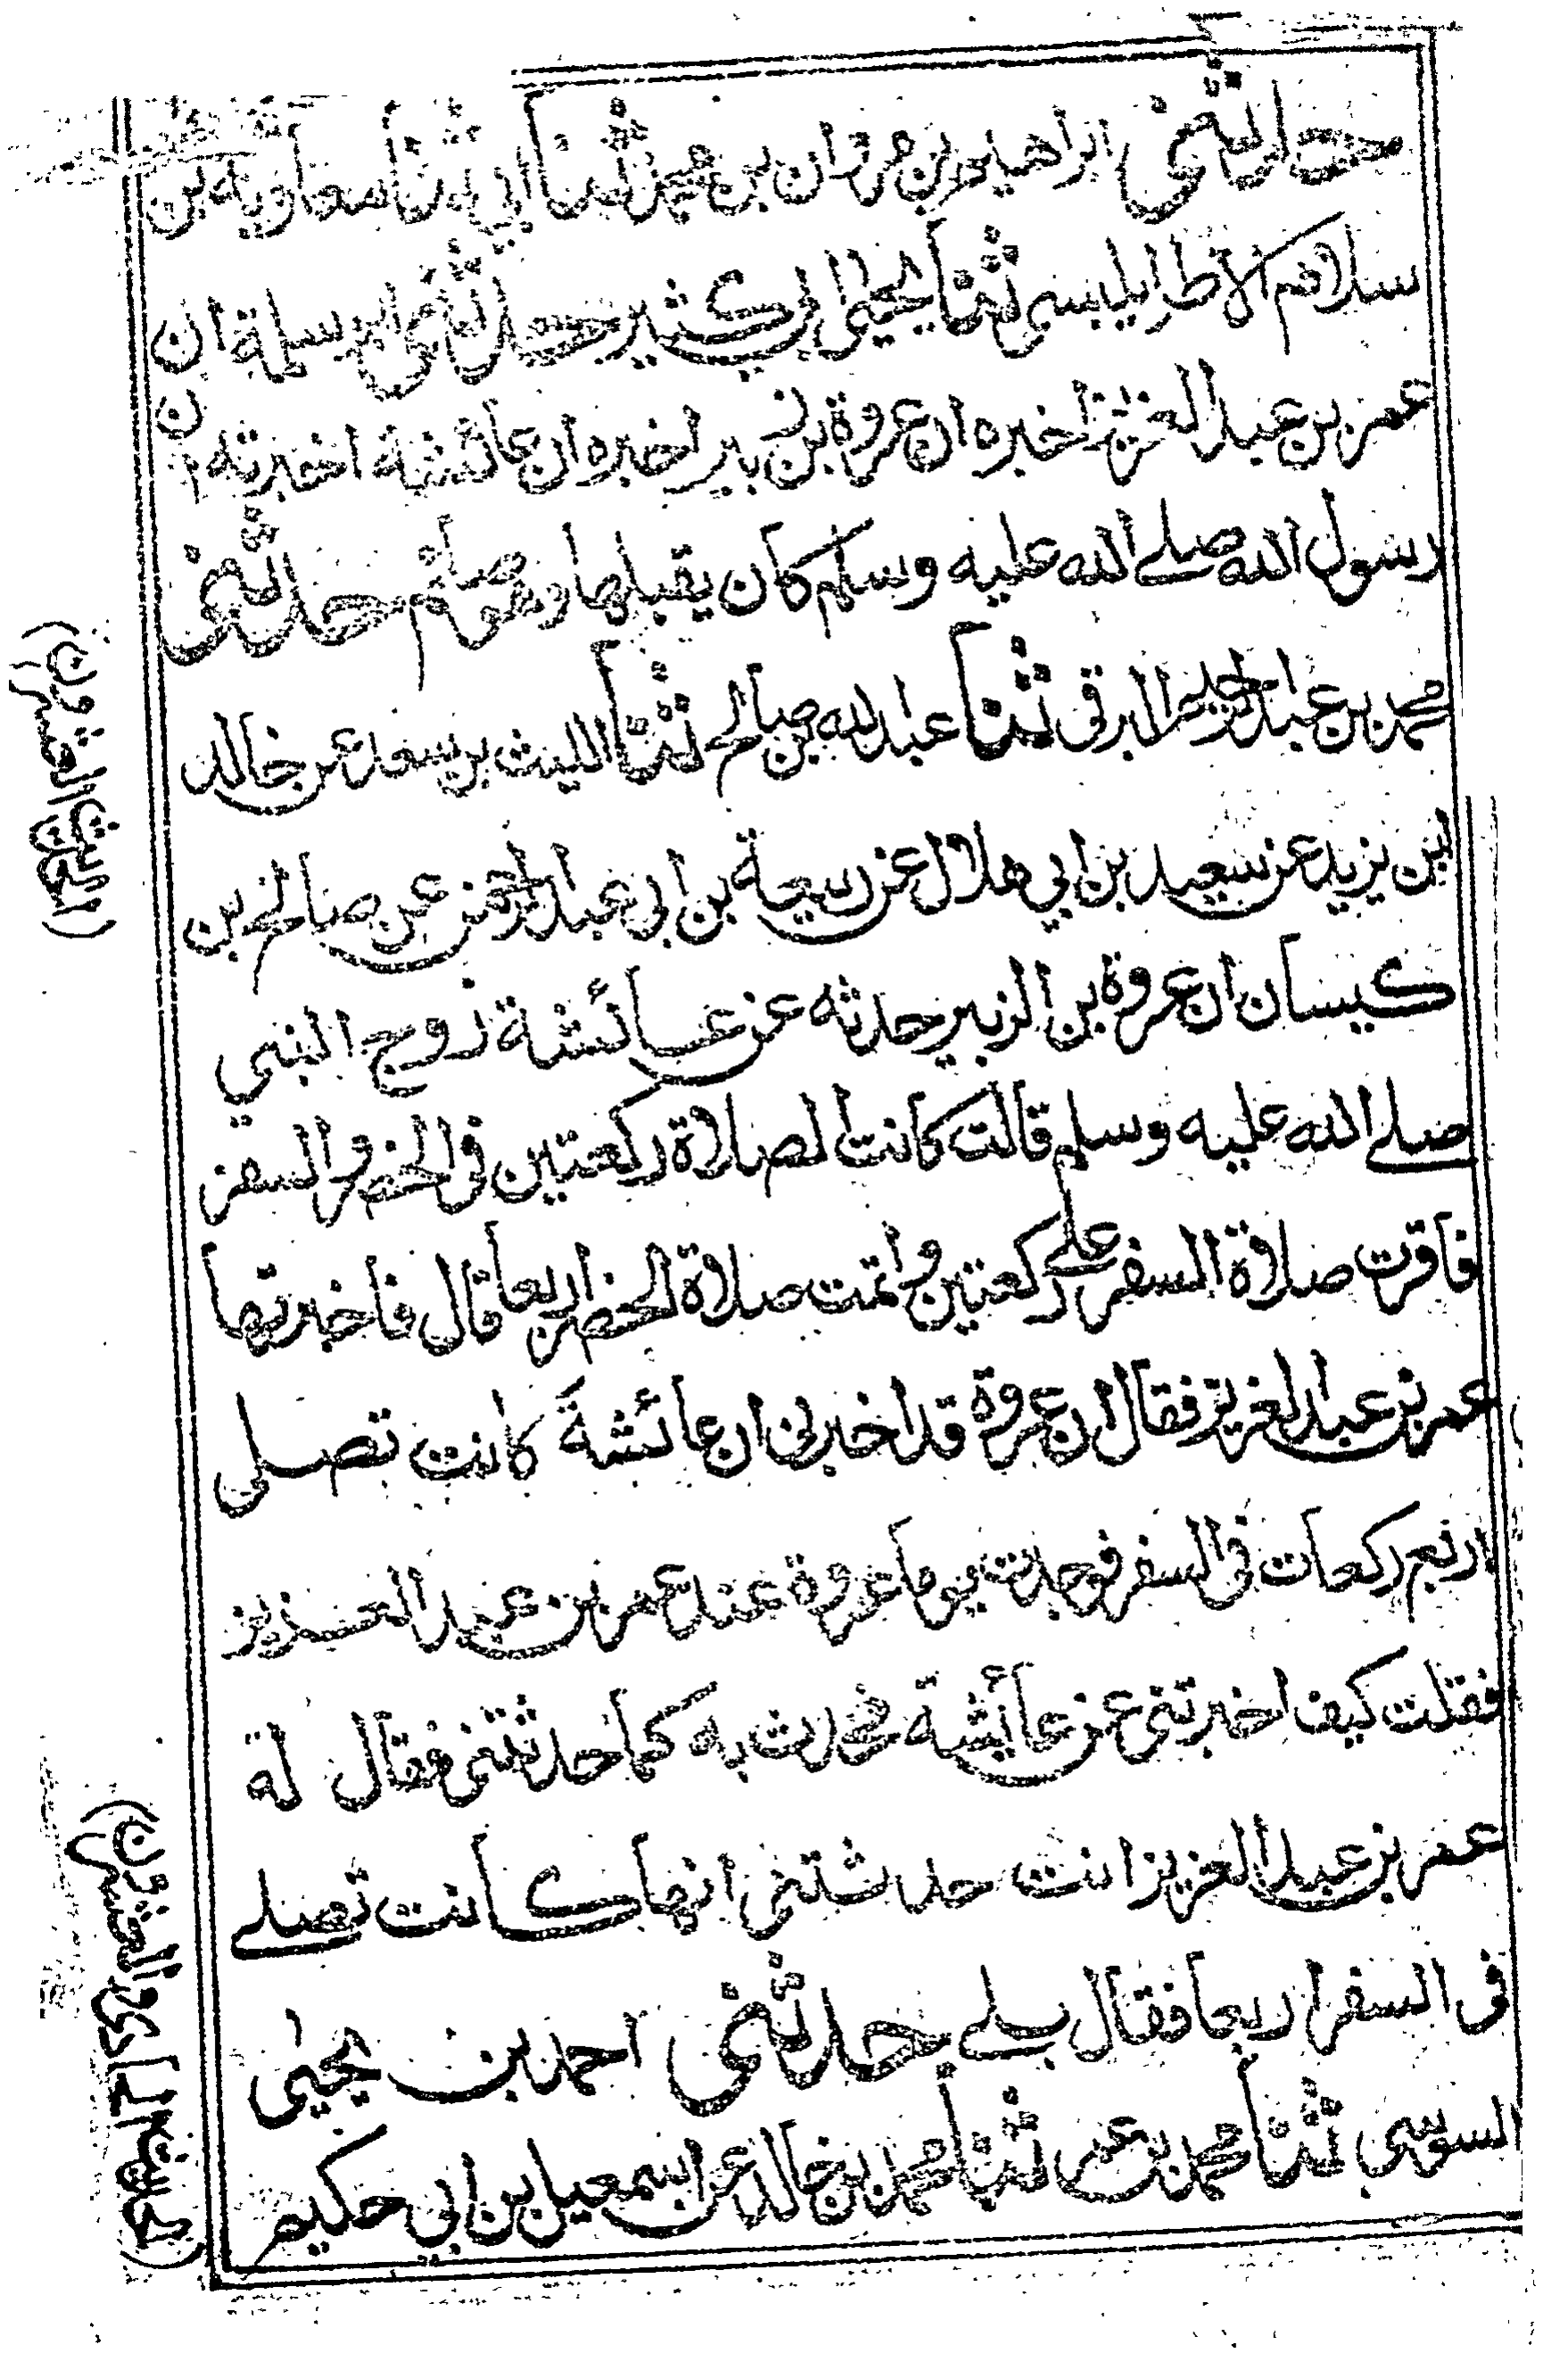 حدثنى ابراهيم بن مروان بن محمد ثنا ابى ثنا معاوية بن
سلام الاطرابلسى ثنا يحيى ابى كثير حدثنى ابو سلمة ان
عمر بن عبد العزيز اخبره ان عروة بن زبير اخبره ان عائشة اخبرته ان
رسول الله صلى الله عليه وسلم كان يقبلها وهو صائم حدثنى
محمد بن عبد الرحيم البرقى ثنا عبد الله بن صالح ثنا الليث بن سعد عن خالد
بن يزيد عن سعيد بن ابي هلال عن ربيعة بن ابى عبد الرحمن عن صالح بن
كيسان ان عروة بن الزبير حدثه عن عائشة زوج النبي
صلے الله عليه وسلم قالت كانت الصلاة ركعتين فى الحضر والسفر
فاقرت صلاة السفر علے ركعتين واتمت صلاة الحضر اربعا قال فاخبرتها
عمر بن عبد العزيز فقال ان عروة قد اخبرنى ان عائشة كانت تصلى
اربع ركعات فى السفر فوجدت يوما عروة عند عمر بن عبد العزيز
فقلت كيف اخبرتنى عن عائشة فحدث به كما حدثتنى فقال له
عمر بن عبد العزيز انت حدثتنى انها كانت تصلے
فى السفر اربعا فقال بلے حدثنى احمد بن يحيى
السوسى ثنا محمد بن عمر ثنا محمد بن خالد عن اسمعيل بن ابى حكيم